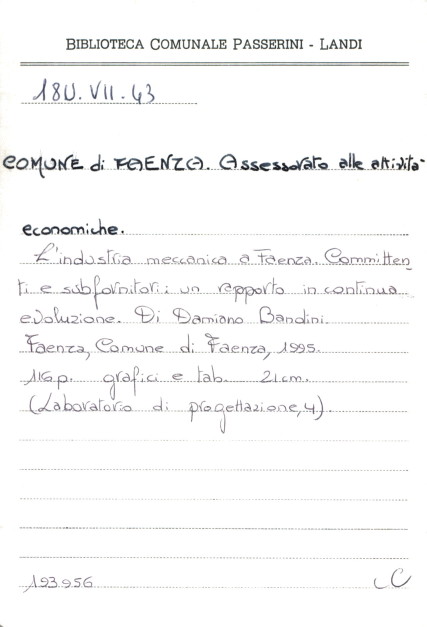 BIBLIOTECA COMUNALE PASSERINI - LANDI
18U.VII.43
COMUNE di FAENZA. Assessorato alle attività
economiche.
L'industria meccanica a Faenza. Committen
ti e subfornitori: un rapporto in continua
evoluzione. Di Damiano Bandini.
Faenza, Comune di Faenza, 1995.
116p. grafici e tab. 21cm.
(Laboratorio di progettazione, 4).
193956